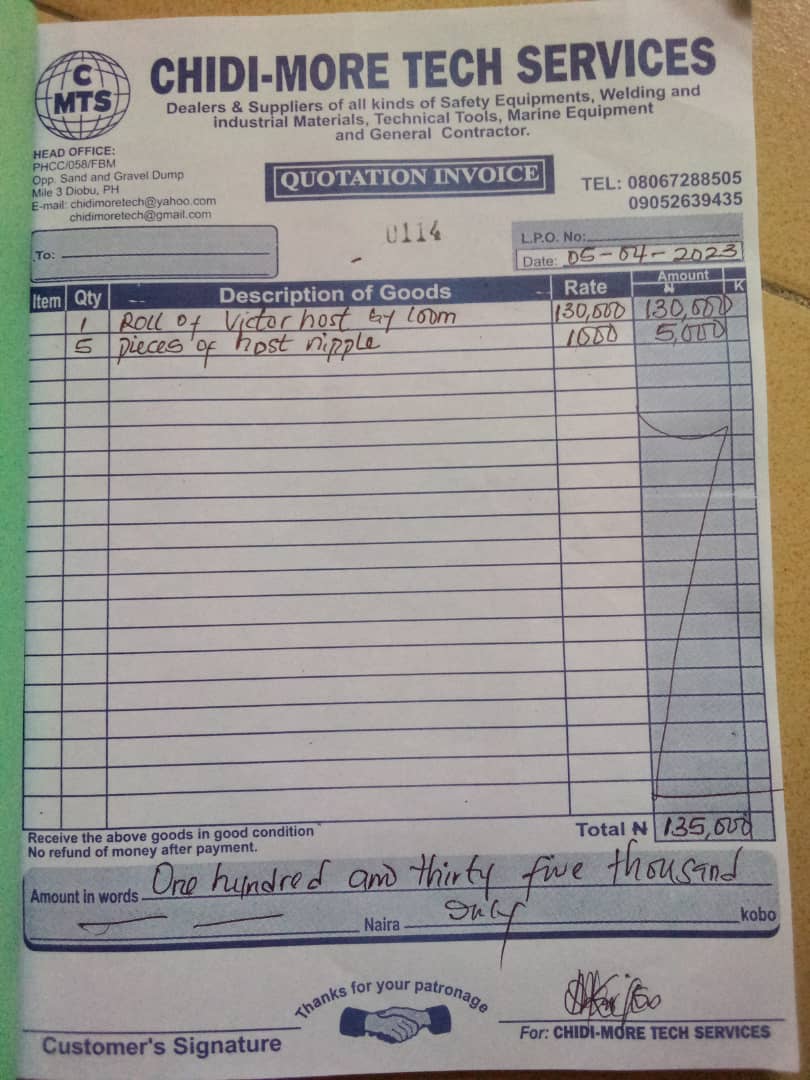 C
MTS
CHIDI-MORE TECH SERVICES
Dealers & Suppliers of all kinds of Safety Equipments, Welding and
industrial Materials, Technical Tools, Marine Equipment
and General Contractor.
HEAD OFFICE:
PHCC/058/FBM
Opp. Sand and Gravel Dump
Mile 3 Diobu, PH
E-mail: chidimoretech@yahoo.com
chidimoretech@gmail.com
QUOTATION INVOICE
TEL: 08067288505
09052639435
0114
To:
L.P.O. No:
Date: 05-04-2023
Item Qty Description of Goods Rate Amount ₦ K
1 Roll of Victor host by 100m 130,000 130,000
5 pieces of host nipple 1000 5,000
Receive the above goods in good condition
No refund of money after payment.
Total ₦ 135,000
Amount in words One hundred and thirty five thousand
Naira only kobo
Thanks for your patronage
Customer's Signature
For: CHIDI-MORE TECH SERVICES